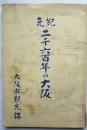 紀元
二千六百年の大阪
大阪市観光課